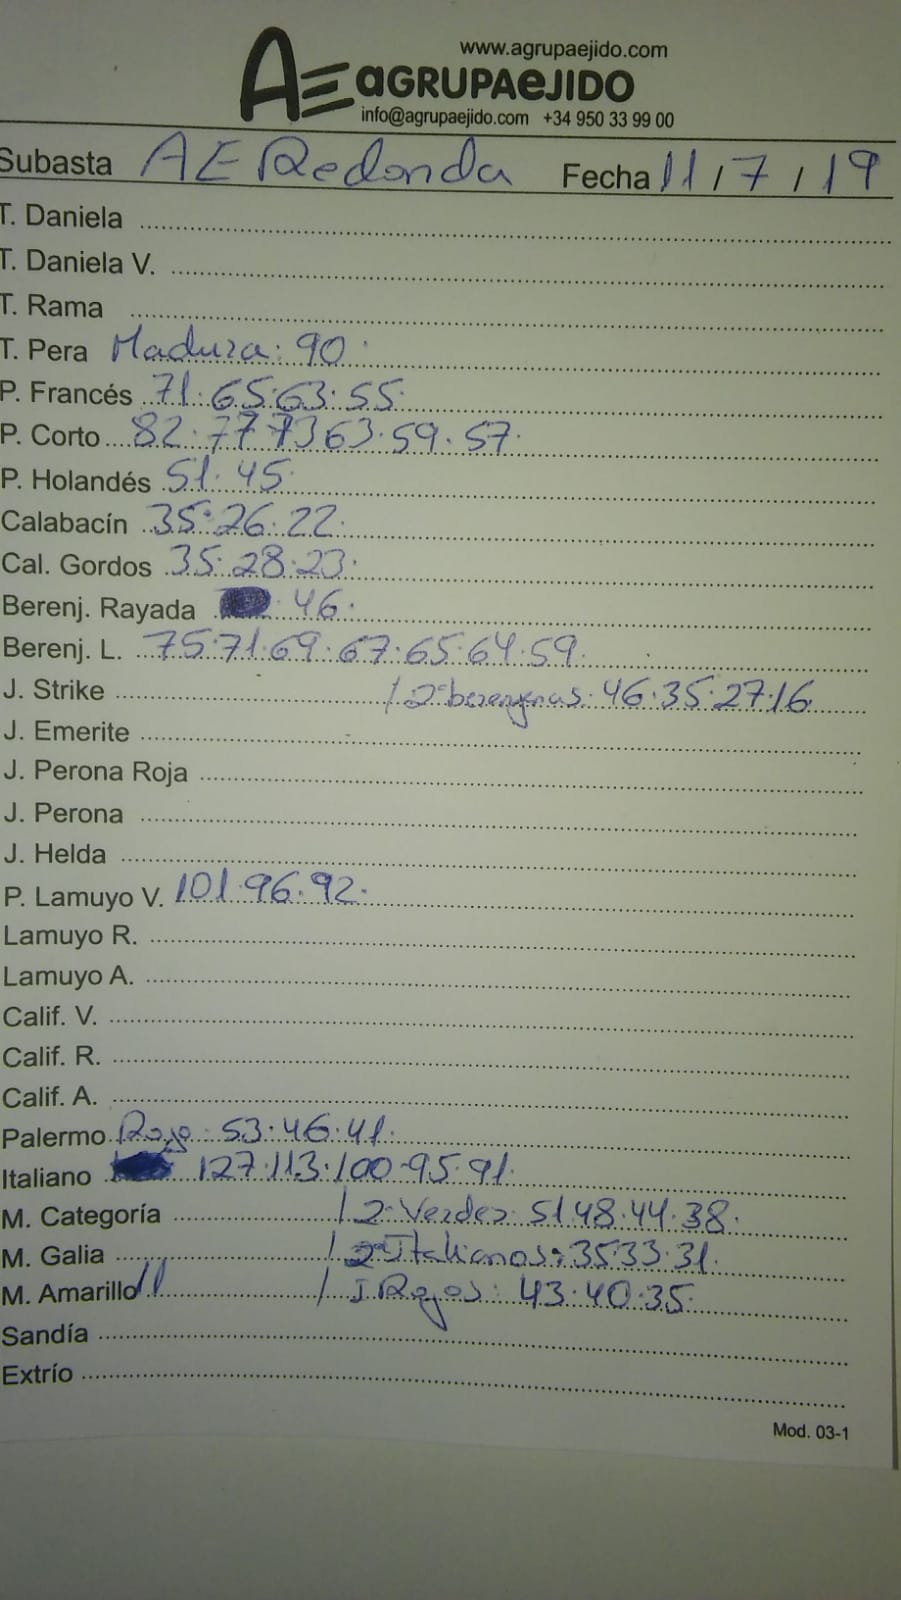 www.agrupaejido.com
AE aGRUPAeJIDO
info@agrupaejido.com +34 950 33 99 00
Subasta AE Redonda Fecha 11/7/19
T. Daniela
T. Daniela V.
T. Rama
T. Pera Madura: 90.
P. Francés 71.65.63.55.
P. Corto 82.77.73 63.59.57.
P. Holandés 51.45.
Calabacín 35.26.22.
Cal. Gordos 35.28.23.
Berenj. Rayada 46.
Berenj. L. 75.71.69.67.65.64.59.
J. Strike / 2ª berenjenas: 46.35.27.16
J. Emerite
J. Perona Roja
J. Perona
J. Helda
P. Lamuyo V. 101.96.92.
Lamuyo R.
Lamuyo A.
Calif. V.
Calif. R.
Calif. A.
Palermo Rojo: 53.46.41.
Italiano 127.113.100.95.91.
M. Categoría / 2ª Verdes: 51.48.44.38.
M. Galia / 2ª Italianos: 35.33.31.
M. Amarillo / I. Rojos: 43.40.35.
Sandía
Extrío
Mod. 03-1